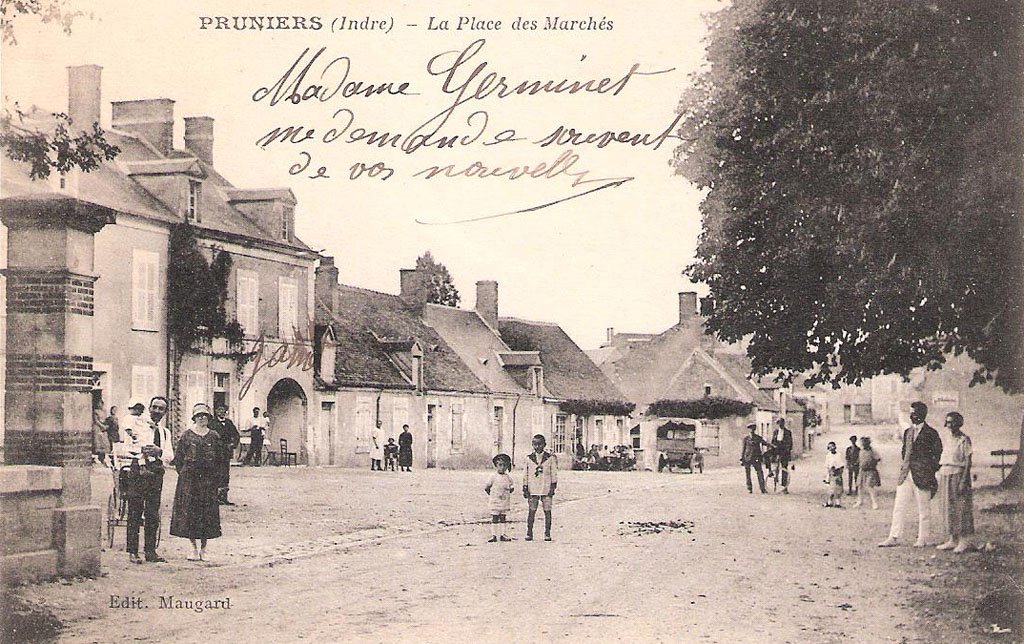 PRUNIERS (Indre) – La Place des Marchés
Madame Germinet
me demande souvent
de vos nouvelles
Edit. Maugard